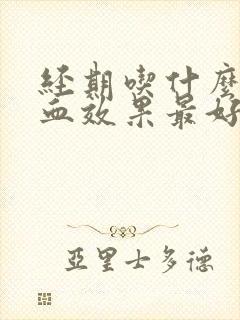 經期喫什麼
血效果最好
亞里士多德